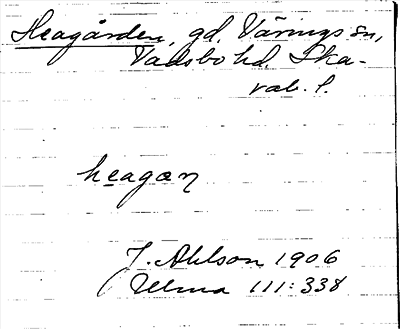 Heagården, gd, Värings sn,
Vadsbo hd, Ska-
rab. l.
heagæn
J. Ahlson 1906
Ulma 111:338